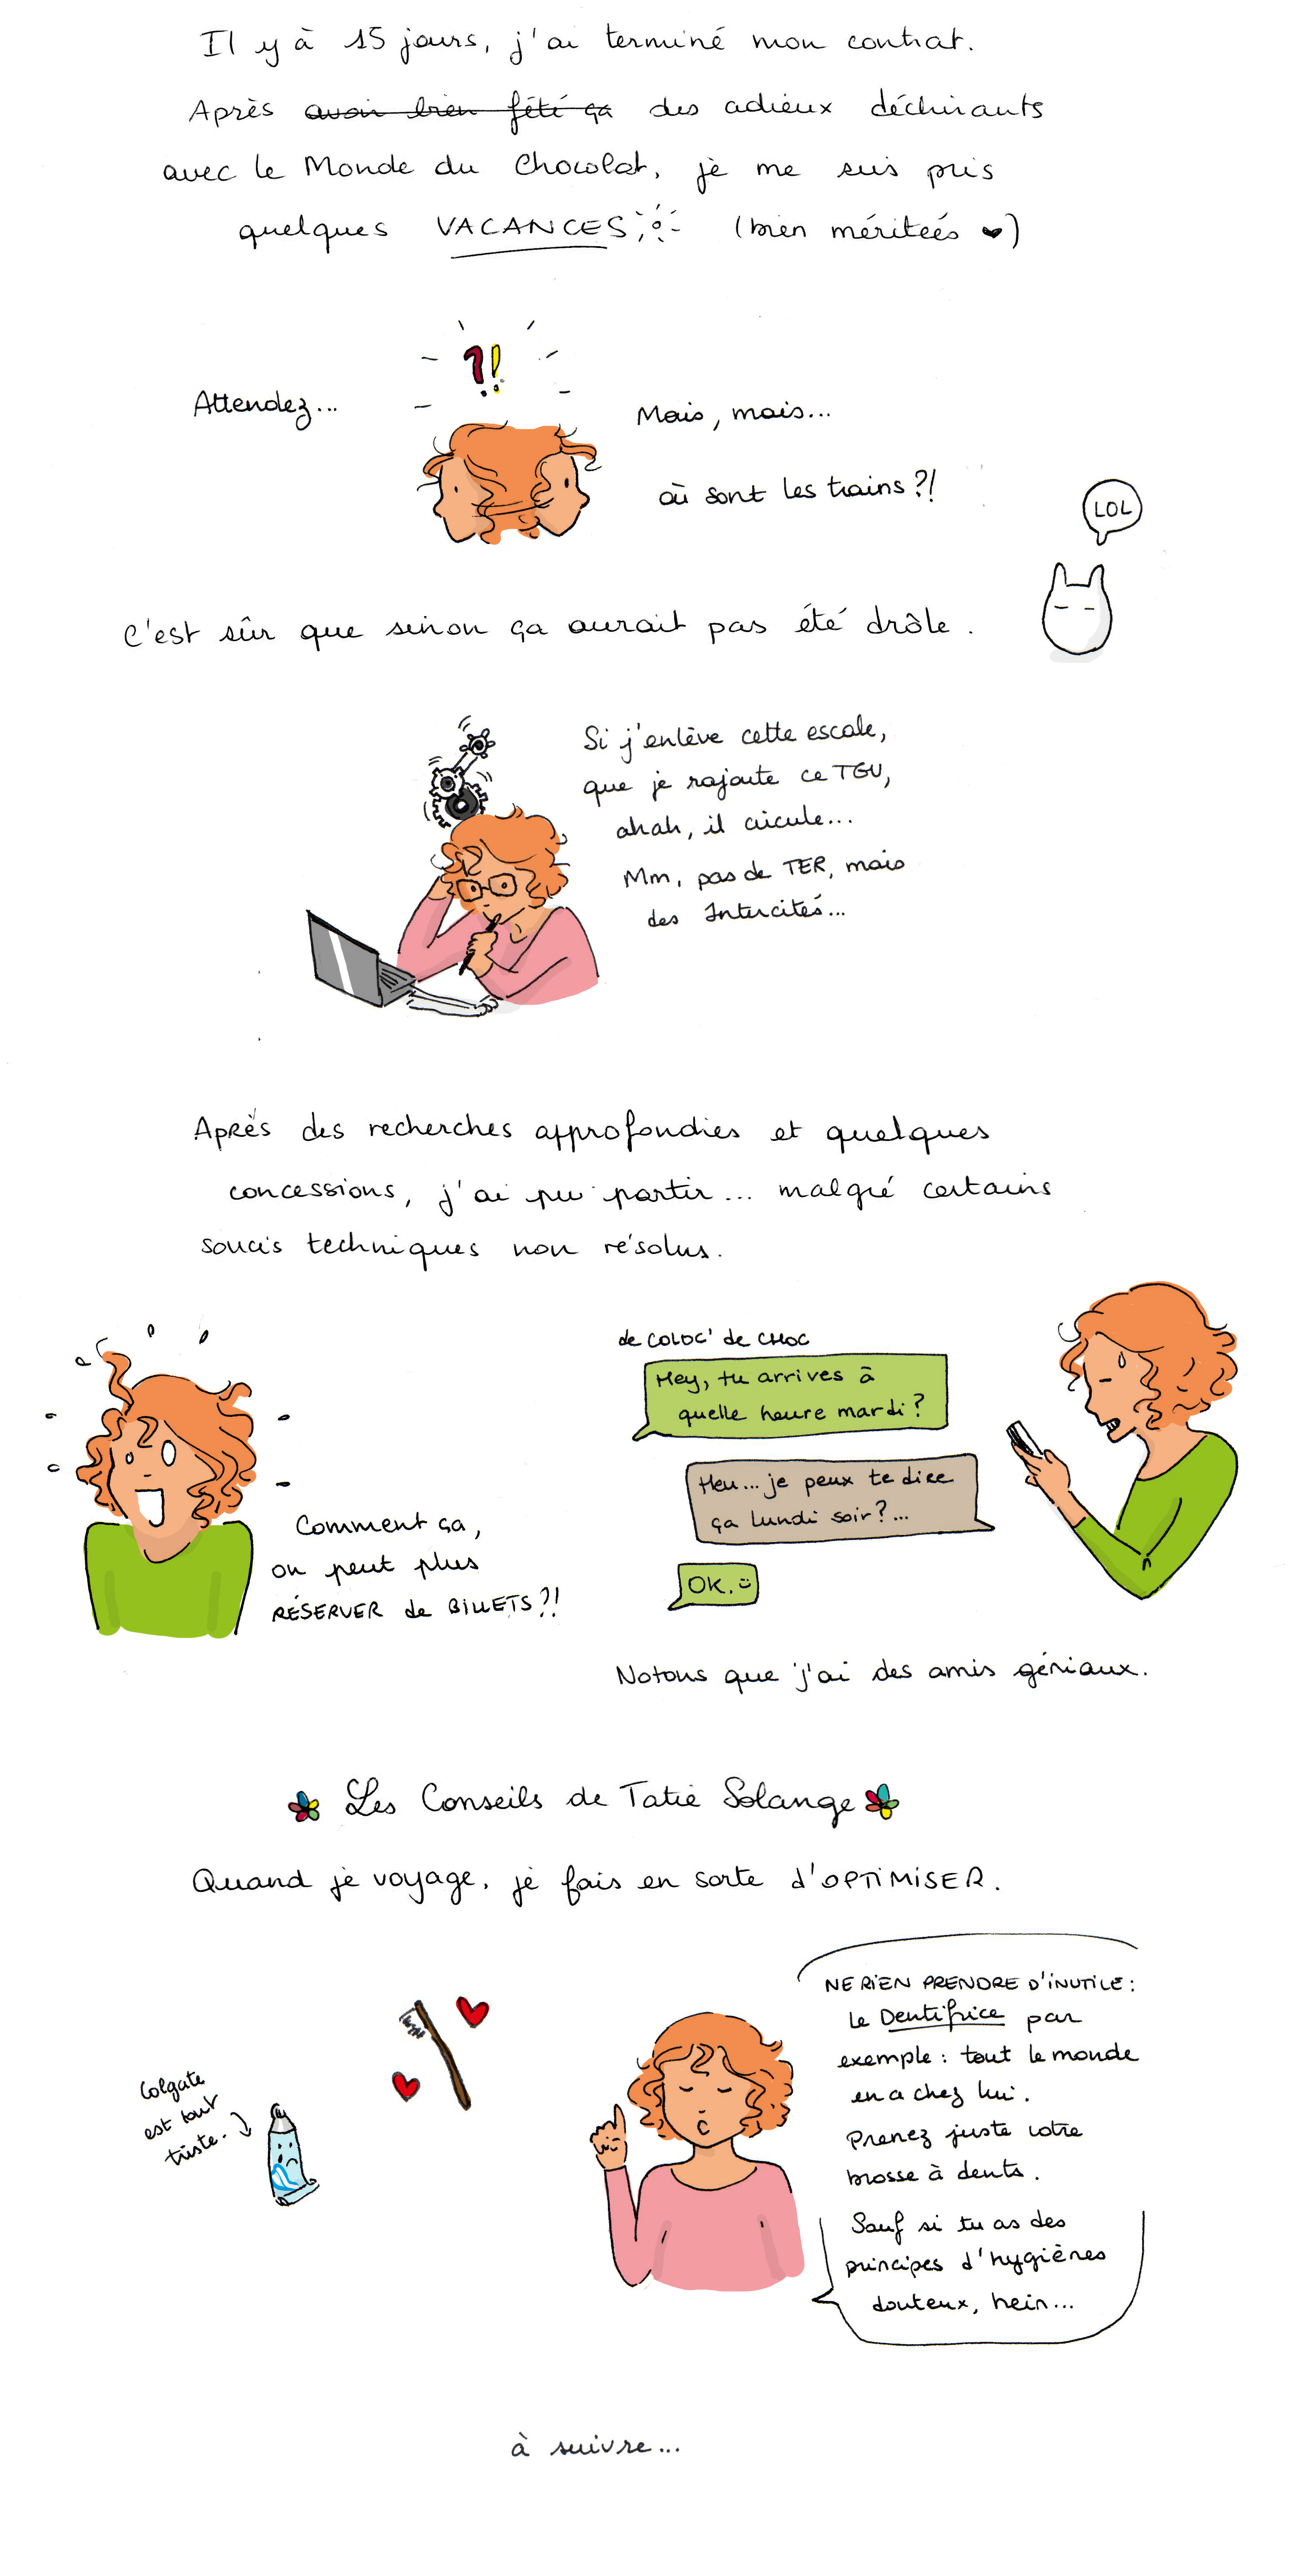 Il y à 15 jours, j'ai terminé mon contrat.
Après avoir bien fêté ça des adieux déchirants
avec le Monde du Chocolat, je me suis pris
quelques VACANCES (bien méritées ♥)
?!
Attendez...
Mais, mais...
où sont les trains ?!
LOL
C'est sûr que sinon ça aurait pas été drôle.
Si j'enlève cette escale,
que je rajoute ce TGV,
ahah, il circule...
Mm, pas de TER, mais
des Intercités...
Après des recherches approfondies et quelques
concessions, j'ai pu partir... malgré certains
soucis techniques non résolus.
de COLOC' de CHOC
Hey, tu arrives à
quelle heure mardi ?
Heu... je peux te dire
ça lundi soir ?...
OK. :)
Comment ça,
on peut plus
RÉSERVER de BILLETS ?!
Notons que j'ai des amis géniaux.
Les Conseils de Tatie Solange
Quand je voyage, je fais en sorte d'OPTIMISER.
NE RIEN PRENDRE D'INUTILE :
le Dentifrice par
exemple : tout le monde
en a chez lui.
Prenez juste votre
brosse à dents.
Sauf si tu as des
principes d'hygiènes
douteux, hein...
Colgate
est tout
triste.
à suivre...